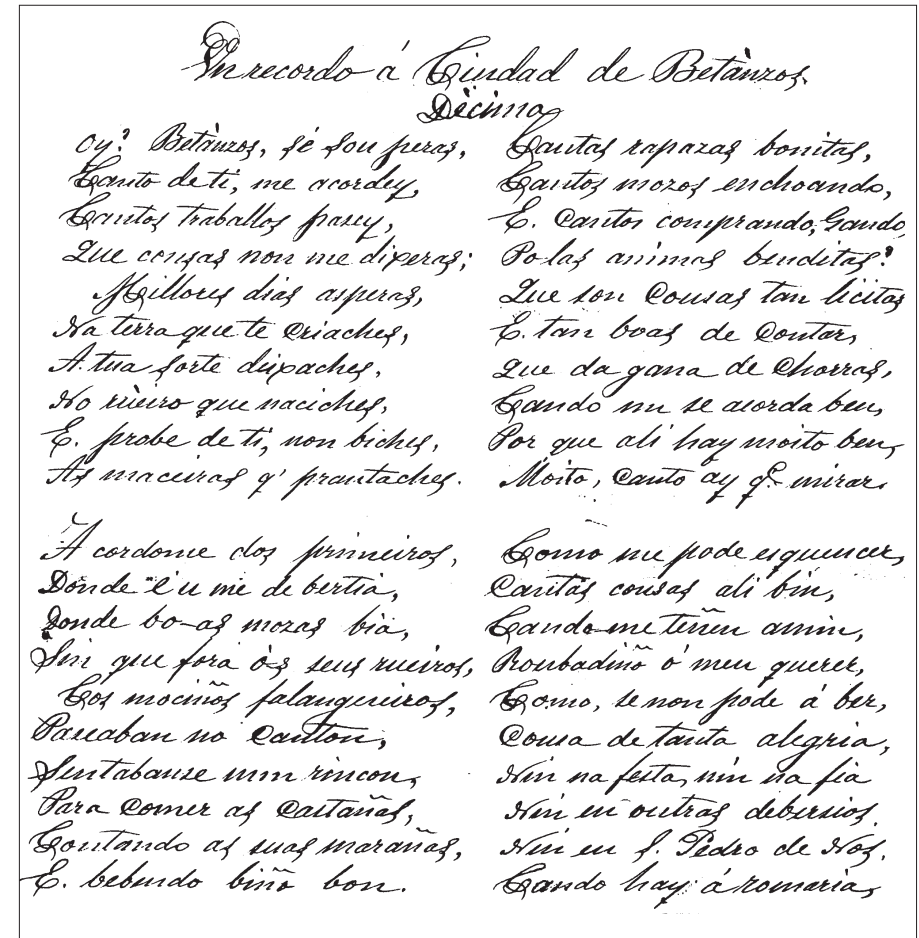 Un recordo á Ciudad de Betànzos.
Dècima
Oy? Betànzos, sé sou peras,
Canto de ti, me acordey,
Cantos traballos pasey,
Que cousas non me dixeras;
Millores dias asperas,
Na terra que te criaches,
A. tua sorte dixaches,
No rùeiro que naciches,
E. probe de ti, non biches,
As maceiras q' prantaches.
A cordome dos primeiros,
Donde eu me de bertia,
Donde bo-as mozas bia,
Sin que fora òs seus rueiros,
Cos mociños falangueiros,
Paseaban no Canton,
Sentabanse nun rincon,
Para comer as castañas,
Contando as suas marañas,
E. bebendo biño bon.
Cantas rapazas bonitas,
Cantos mozos enchoando,
E. cantos comprando, Gando,
Polas animas benditas?
Que son Cousas tan licitas
E. tan boas de Contar,
Que da gana de Chorrar,
Cando un se acorda ben,
Por que ali hay moito ben,
Moito, canto ay qe mirar.
Como me pode esquencer,
Cantas cousas ali bin,
Cando me teñen amin,
Roubadiño ò meu querer,
Como, se non pode á ber,
Cousa de tanta alegria,
Nin na festa, nin na fia
Nin en outras debersios.
Nin en S. Pedro de Nos.
Cando hay á romaria,